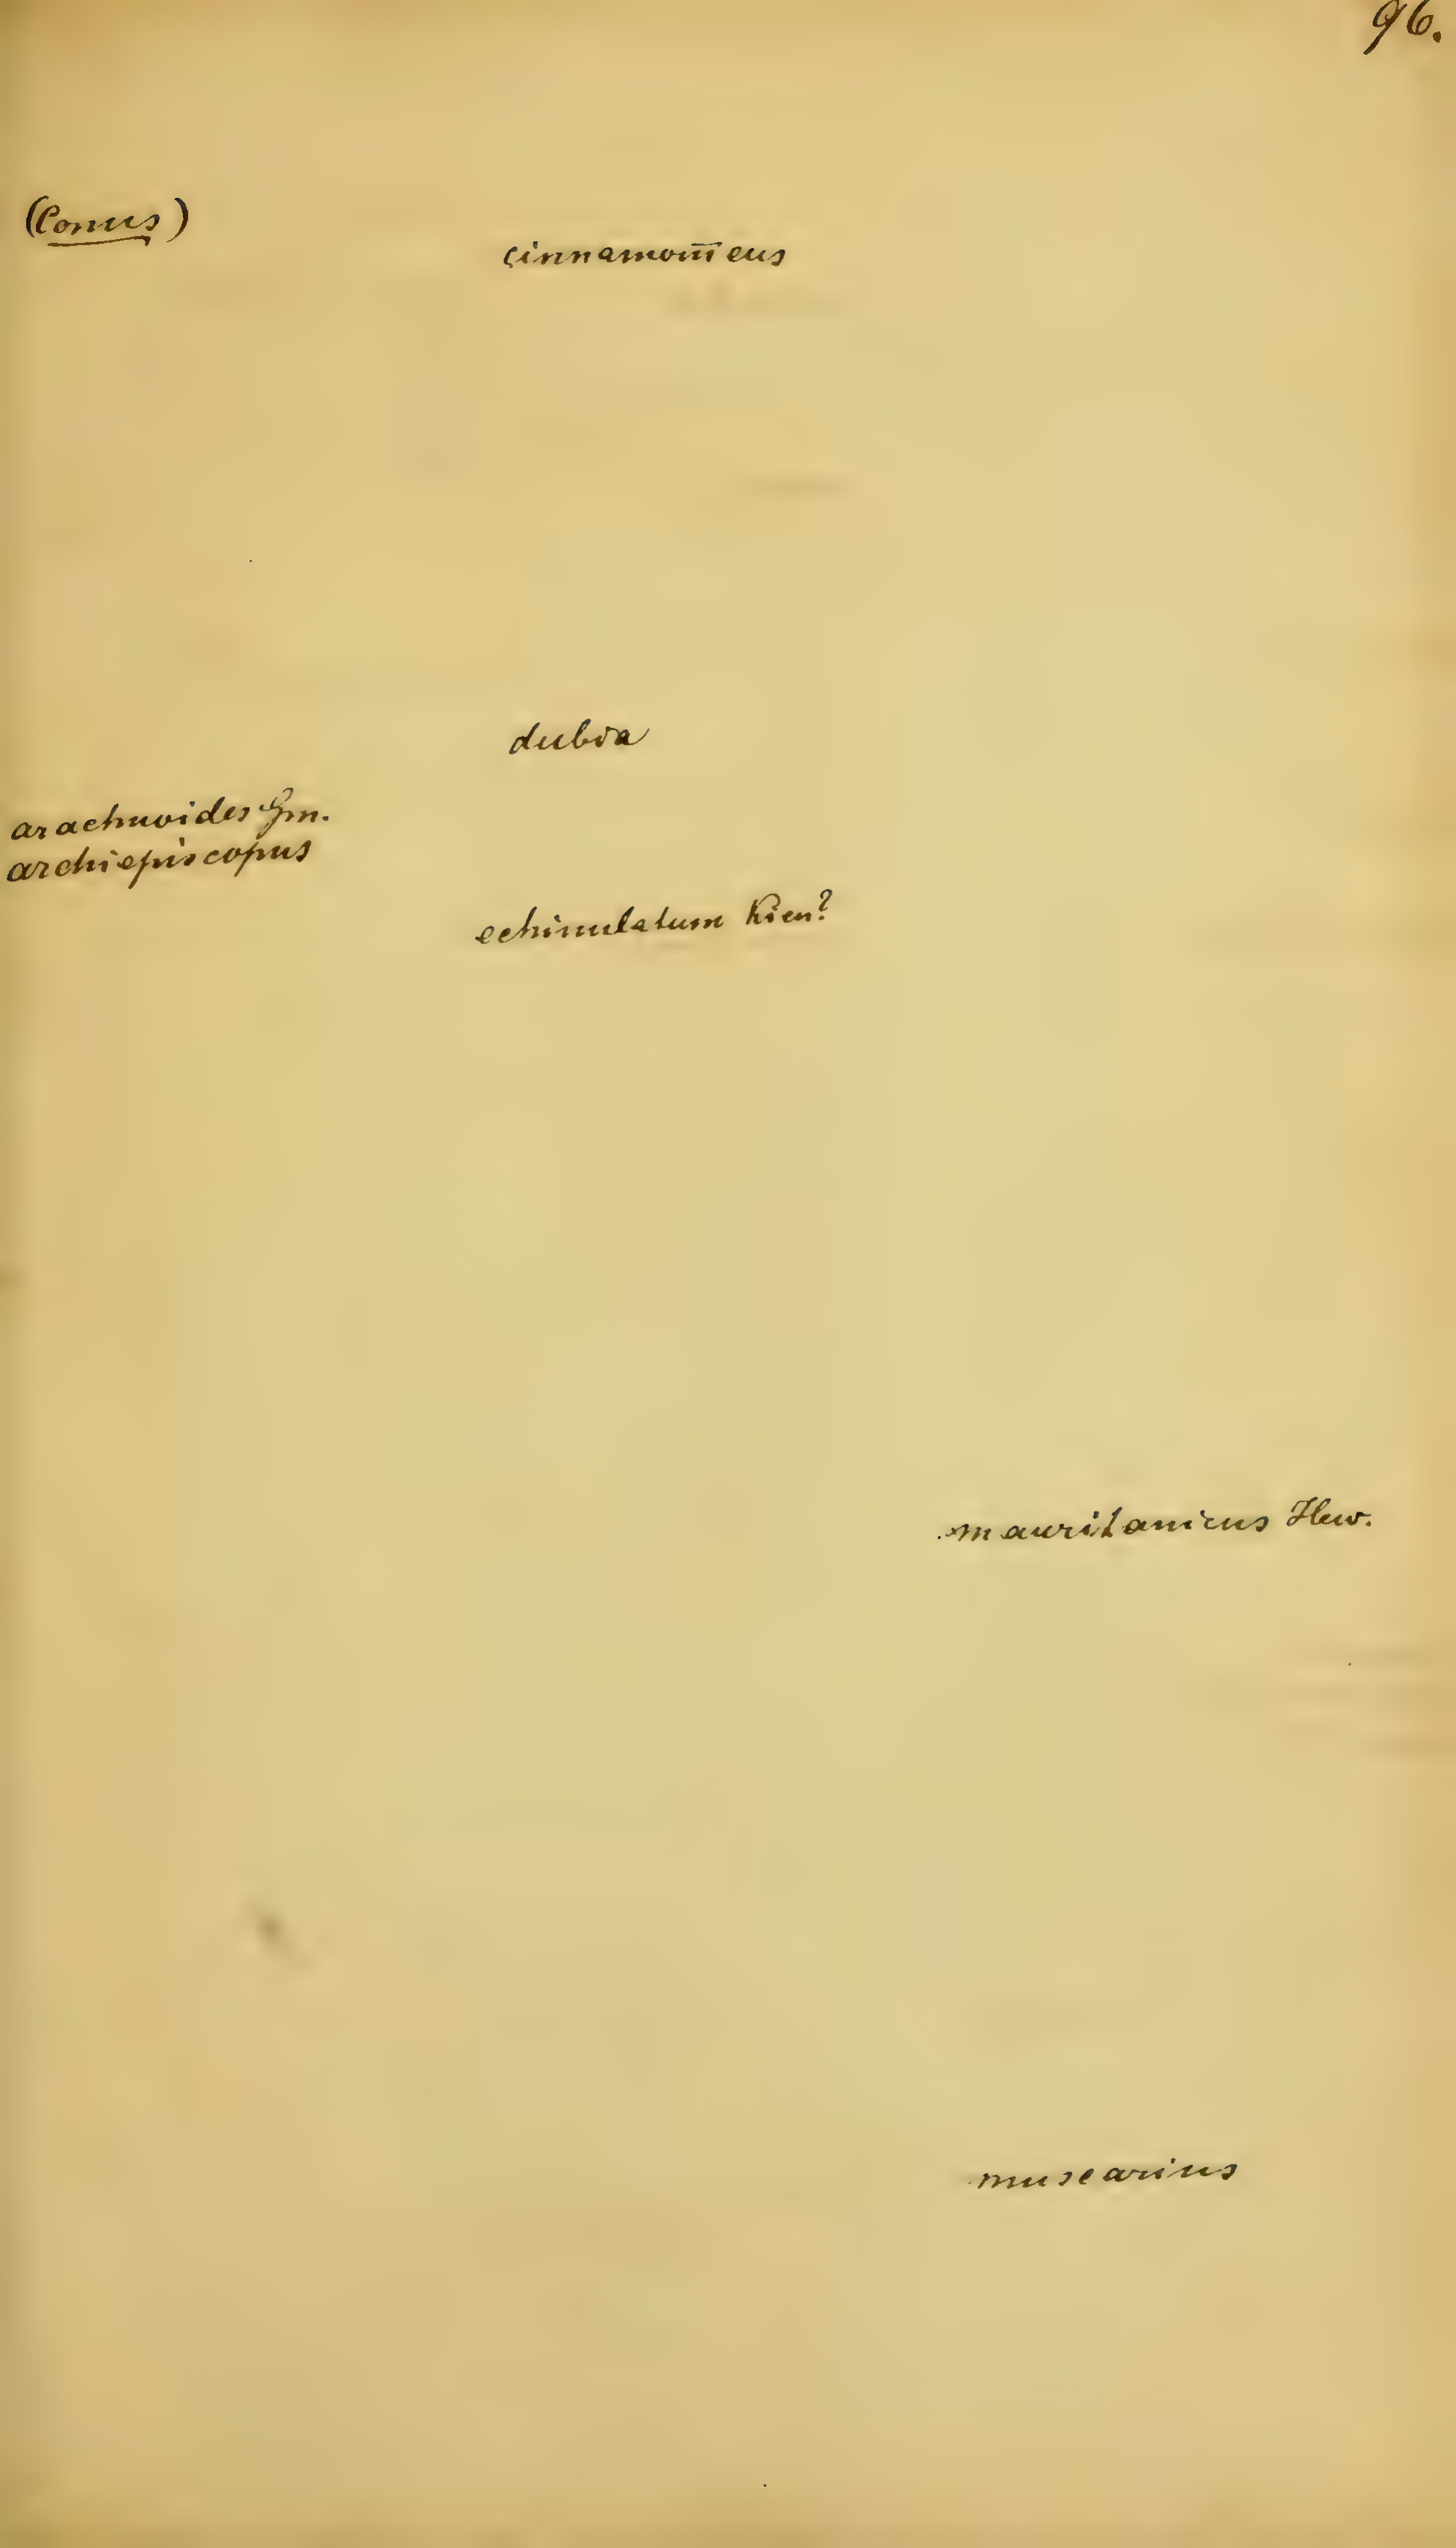 96.
(Conus)
cinnamomeus
dubia
arachnoides Gm.
archiepiscopus
echinulatum Kien?
mauritanicus Hw.
muscarius